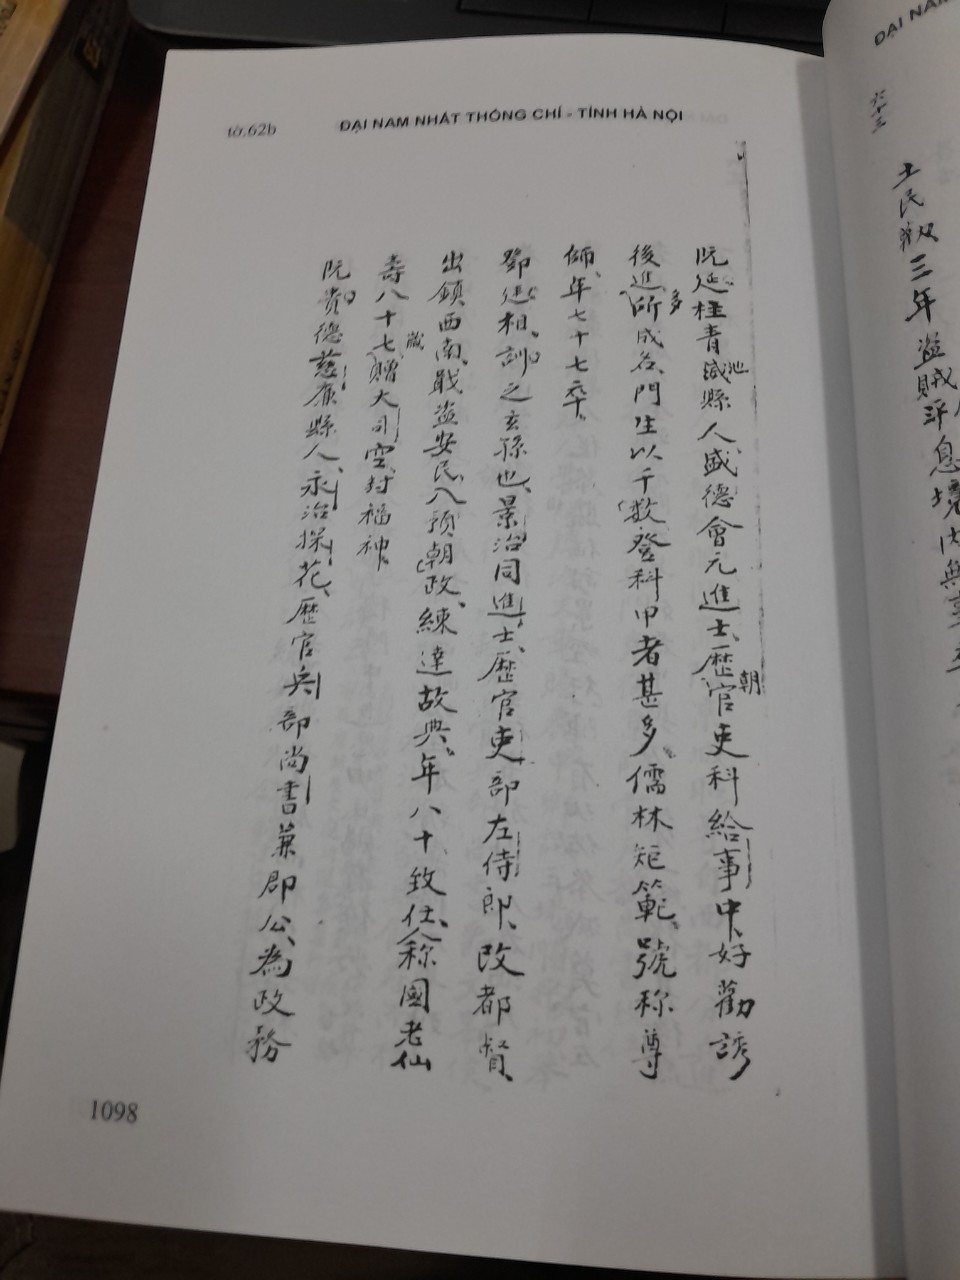 tờ.62b
ĐẠI NAM NHẤT THỐNG CHÍ - TỈNH HÀ NỘI
阮廷柱青池縣人盛德會元進士歷朝官吏科給事中好勸誘
後進多所成名門生以千數登科甲者甚多儒林矩範號称尊
師年七十七卒
鄧廷相訓之玄孫也景治同進士歷官吏部左侍郎改都督
出鎮西南戢盗安民入預朝政練達故典年八十致仕称國老仙
壽八十七歲贈大司空封福神
阮貴德慈廉縣人永治探花歷官兵部尚書兼郡公為政務
1098
ĐẠI NAM
六十三
土民
三年盗賊
息境内無事